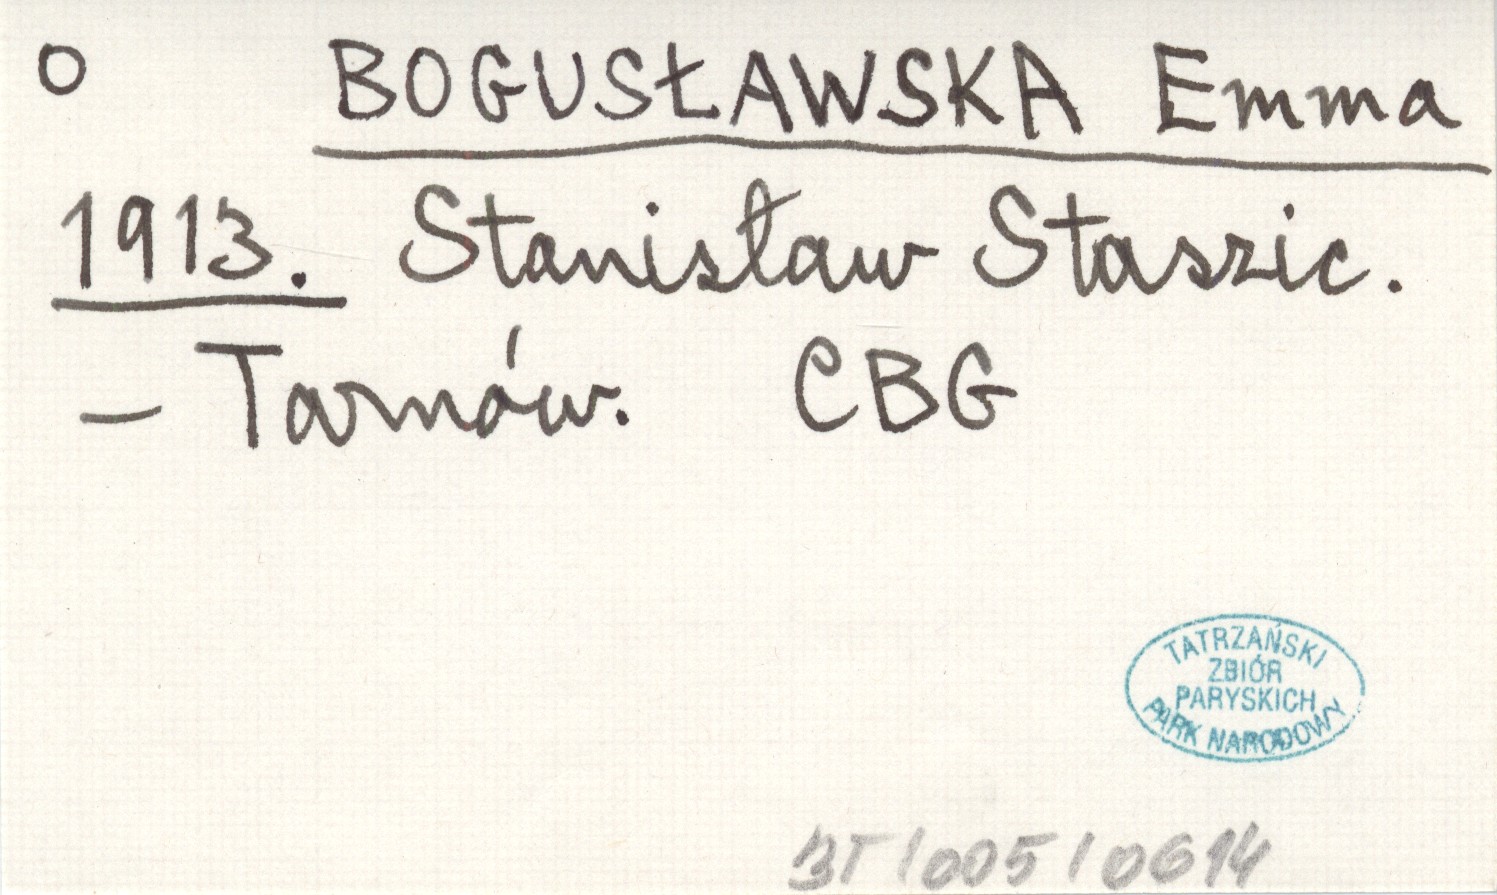 o BOGUSŁAWSKA Emma
1913. Stanisław Staszic.
– Tarnów. CBG
TATRZAŃSKI
ZBIÓR
PARYSKICH
PARK NARODOWY
BT/005/0614